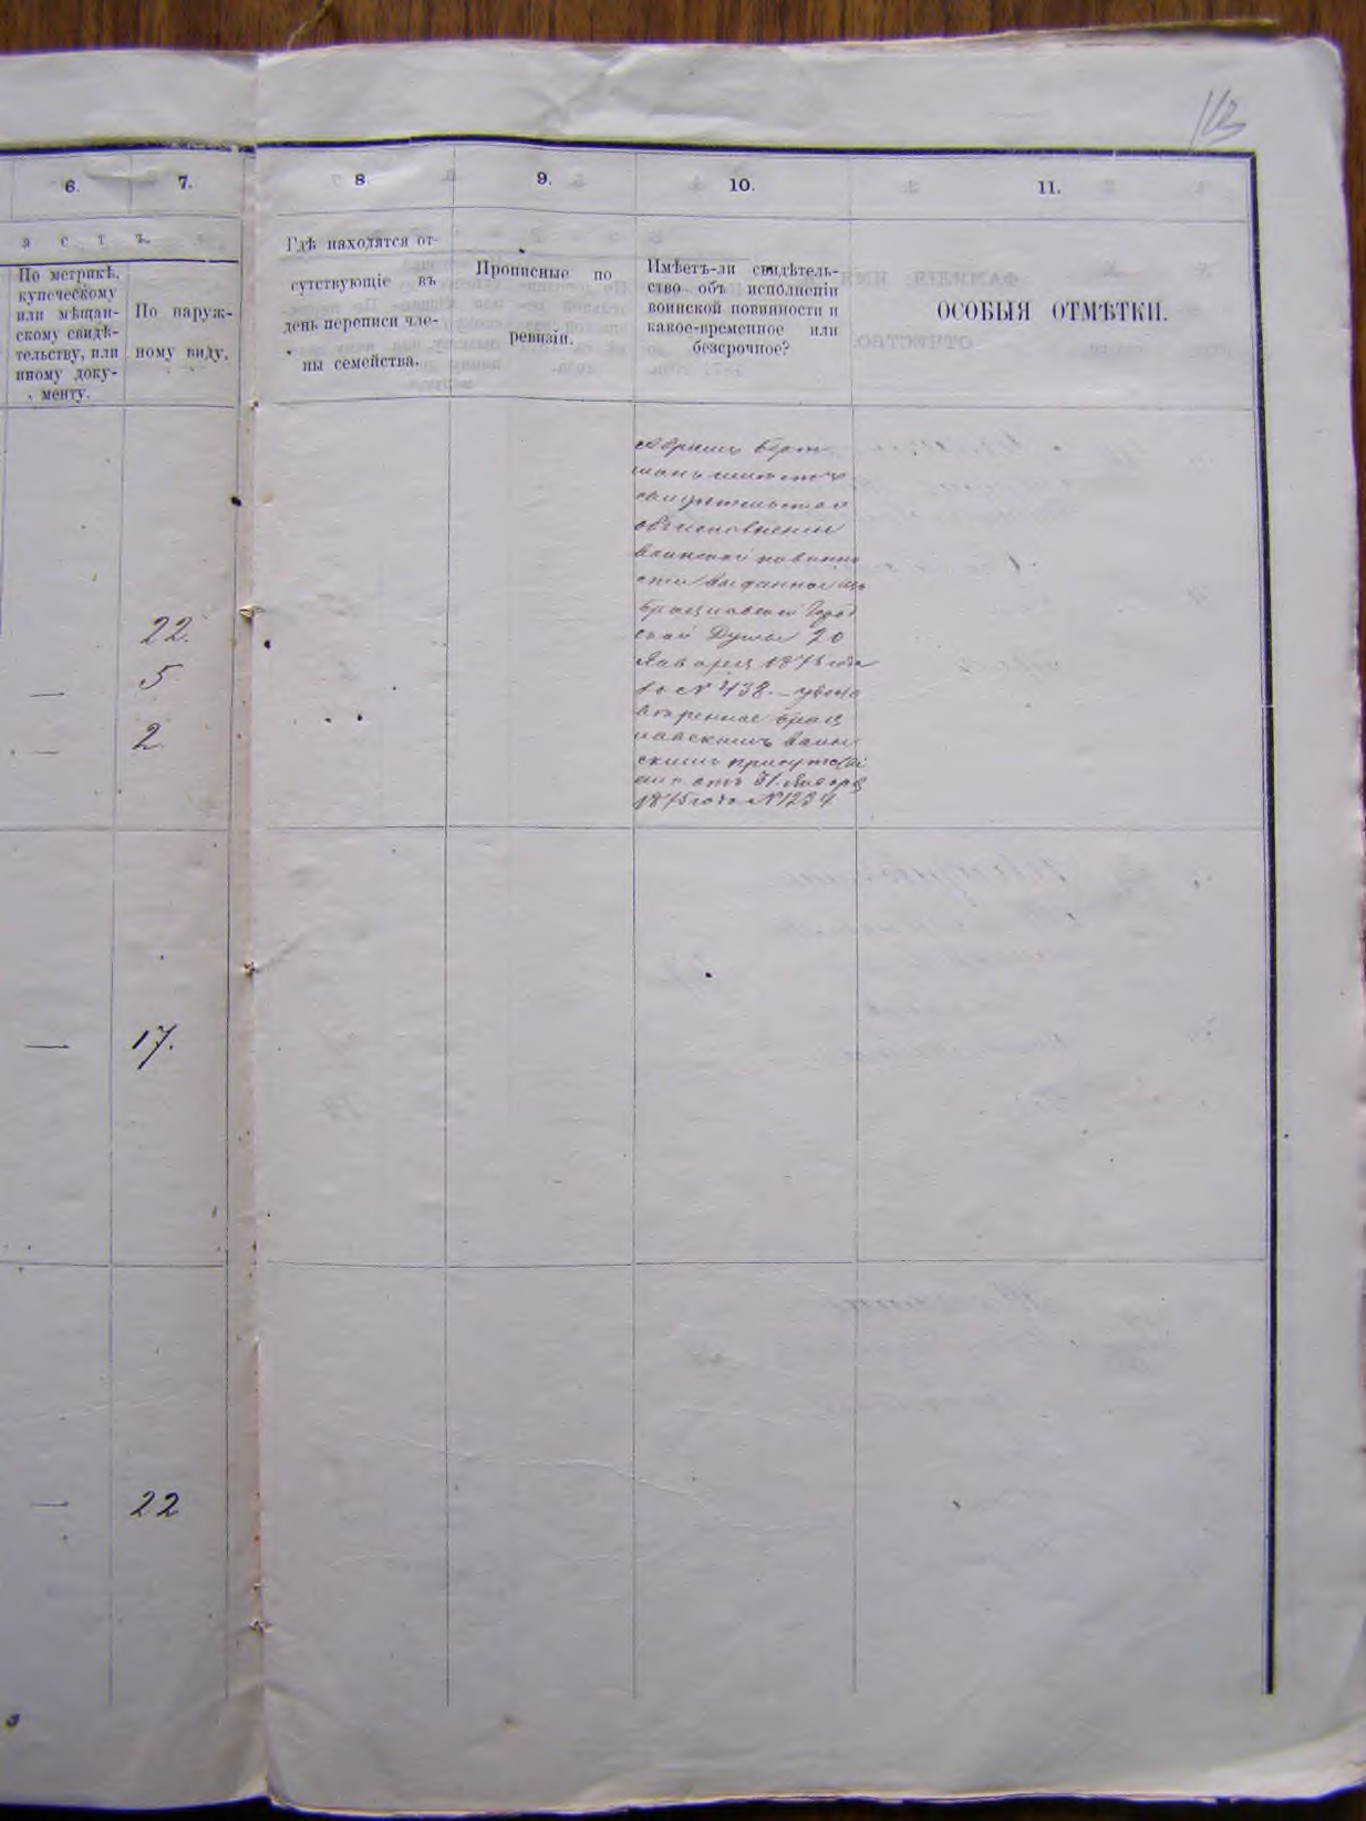 113
6.
7.
8
9.
10.
11.
а с т ь.
По метрикѣ,
купеческому
или мѣщан-
скому свидѣ-
тельству, или
иному доку-
менту.
По наруж-
ному виду.
Гдѣ находятся от-
сутствующіе въ
день переписи чле-
ны семейства.
Прописные по
ревизіи.
Имѣетъ-ли свидѣтель-
ство объ исполненіи
воинской повинности и
какое-временное или
безсрочное?
ОСОБЫЯ ОТМѢТКИ.
имѣетъ
свидѣтельство
объ исполненіи
воинской повинно
сти выданное изъ
Брацлавской Город
ской Думы 20
Января 1875 года
за № 438.
Брац
лавскимъ воин
скимъ присутстві
емъ отъ 31 Января
1875 года № 1234
22.
— 5
— 2
— 17.
— 22